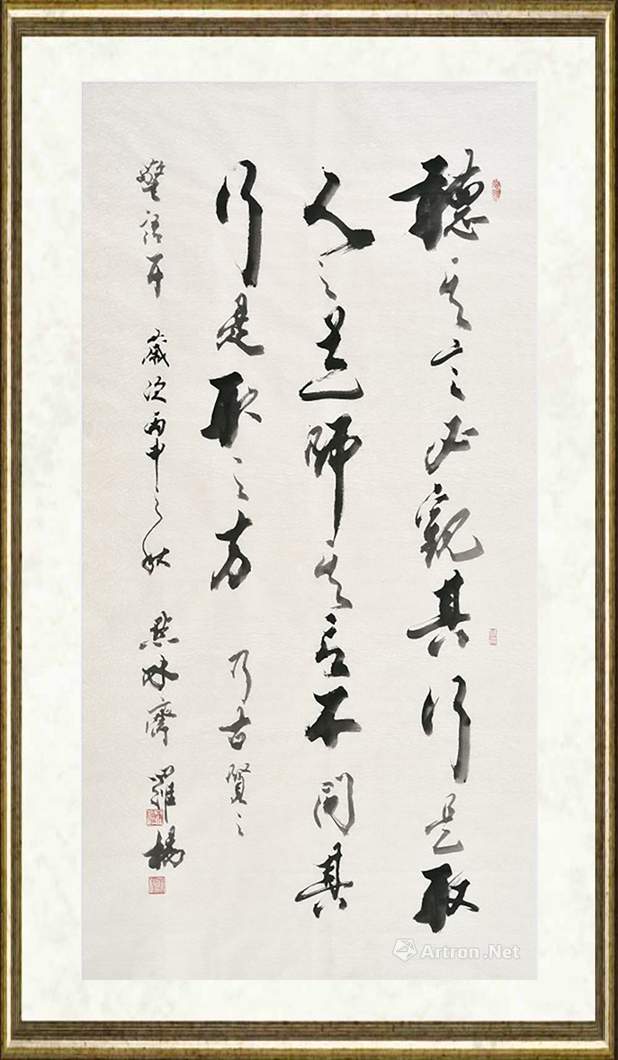 聽其言必觀其行是取
人之道師其言不問其
行是取之方 乃古賢之
警語耳 歲次丙申之秋 點水齋 羅楊
Artron.Net